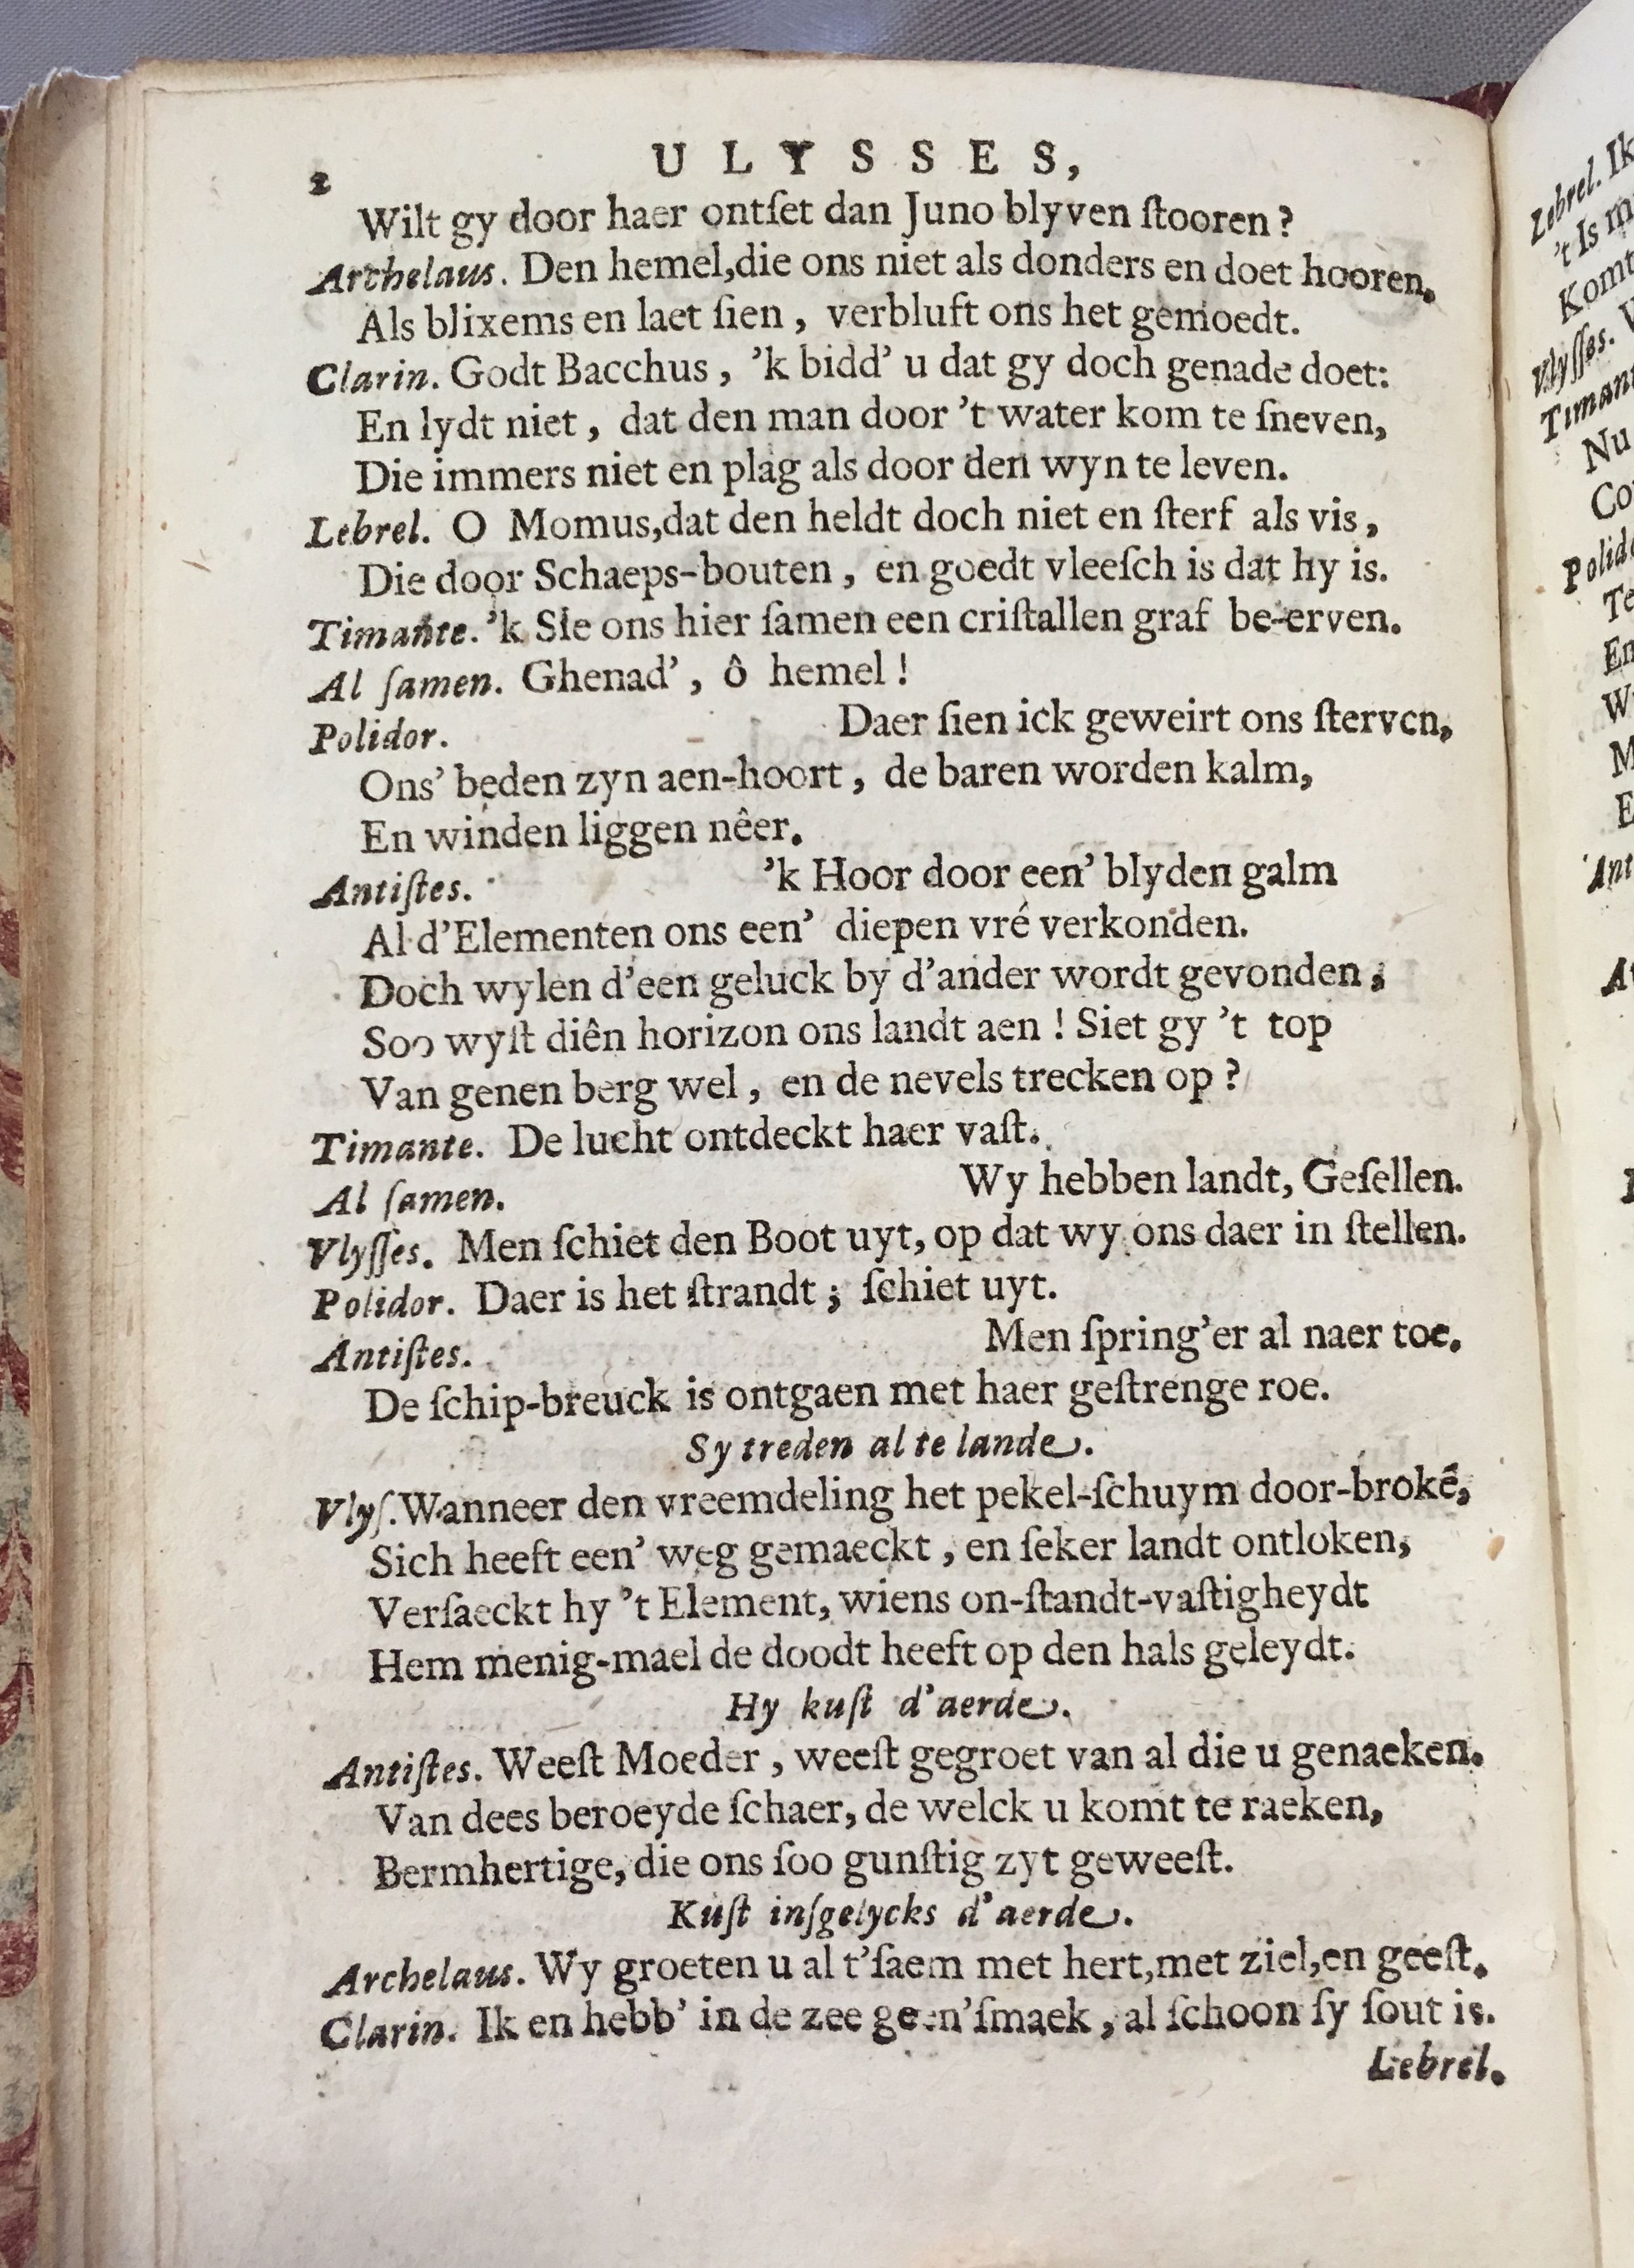 2 ULYSSES,
Wilt gy door haer ontſet dan Juno blyven ſtooren?
Archelaus. Den hemel,die ons niet als donders en doet hooren.
Als blixems en laet ſien, verbluft ons het gemoedt.
Clarin. Godt Bacchus, 'k bidd' u dat gy doch genade doet:
En lydt niet, dat den man door 't water kom te ſneven,
Die immers niet en plag als door den wyn te leven.
Lebrel. O Momus,dat den heldt doch niet en ſterf als vis,
Die door Schaeps-bouten, en goedt vleeſch is dat hy is.
Timante. 'k Sie ons hier ſamen een criſtallen graf be-erven.
Al ſamen. Ghenad', ô hemel!
Polidor. Daer ſien ick geweirt ons ſterven,
Ons' beden zyn aen-hoort, de baren worden kalm,
En winden liggen nêer.
Antiſtes. 'k Hoor door een' blyden galm
Al d'Elementen ons een' diepen vré verkonden.
Doch wylen d'een geluck by d'ander wordt gevonden;
Soo wyſt diên horizon ons landt aen! Siet gy 't top
Van genen berg wel, en de nevels trecken op?
Timante. De lucht ontdeckt haer vaſt.
Al ſamen. Wy hebben landt, Geſellen.
Vlyſſes. Men ſchiet den Boot uyt, op dat wy ons daer in ſtellen.
Polidor. Daer is het ſtrandt; ſchiet uyt.
Antiſtes. Men ſpring'er al naer toe.
De ſchip-breuck is ontgaen met haer geſtrenge roe.
Sy treden al te lande.
Vlyſ. Wanneer den vreemdeling het pekel-ſchuym door-brokē,
Sich heeft een' weg gemaeckt, en ſeker landt ontloken,
Verſaeckt hy 't Element, wiens on-ſtandt-vaſtigheydt
Hem menig-mael de doodt heeft op den hals geleydt.
Hy kuſt d'aerde.
Antiſtes. Weeſt Moeder, weeſt gegroet van al die u genaeken.
Van dees beroeyde ſchaer, de welck u komt te raeken,
Bermhertige, die ons ſoo gunſtig zyt geweeſt.
Kuſt inſgelycks d'aerde.
Archelaus. Wy groeten u al t'ſaem met hert,met ziel,en geeſt.
Clarin. Ik en hebb' in de zee geen'ſmaek, al ſchoon ſy ſout is.
Lebrel.
Lebrel. Ik
't Is
Komt
Vlyſſes.
Nu